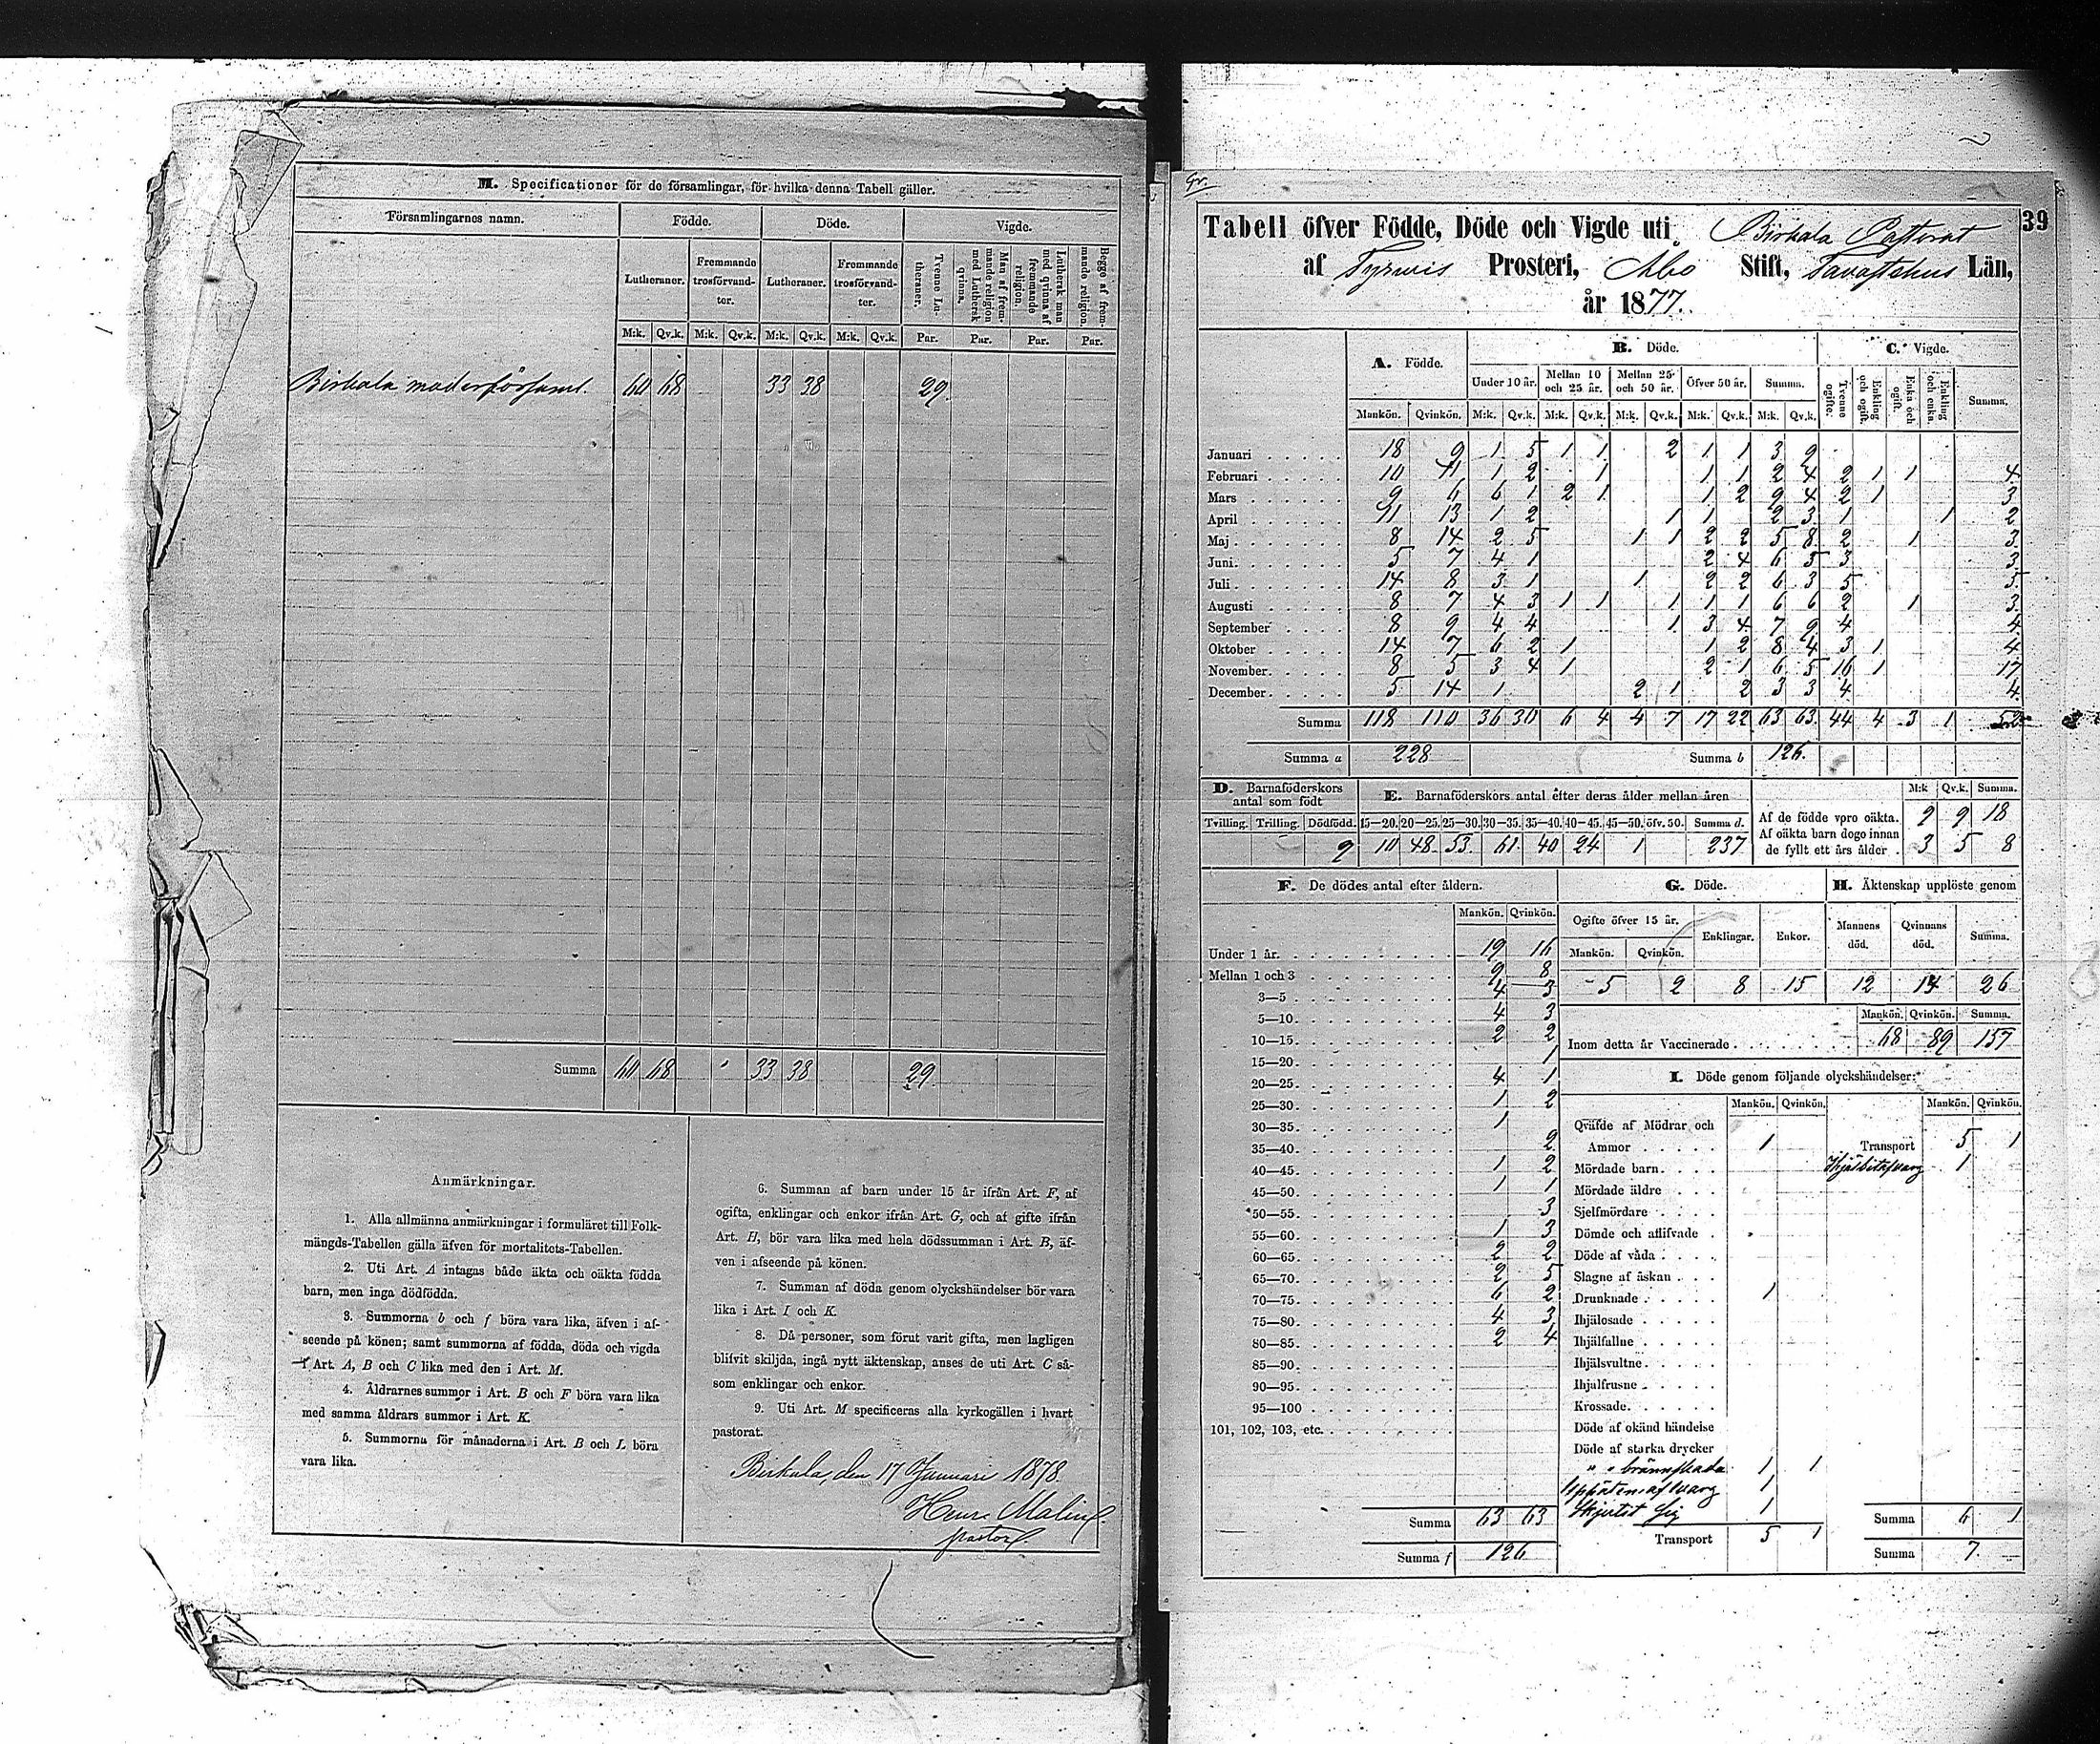 M. Specificationer för de församlingar, för hvilka denna Tabell gäller.
Församlingarnes namn. Födde. Döde. Vigde.
Lutheraner. Fremmande trosförvandter. Lutheraner. Fremmande trosförvandter. Tvenne Lutheraner. Man af fremmande religion med Luthersk qvinna. Luthersk man med qvinna af fremmande religion. Begge af fremmande religion.
M:k. Qv.k. M:k. Qv.k. M:k. Qv.k. M:k. Qv.k. Par. Par. Par. Par.
Birkala moderförsaml. 60 68 33 38 29
Summa 60 68 33 38 29
Anmärkningar.
1. Alla allmänna anmärkningar i formuläret till Folk-
mängds-Tabellen gälla äfven för mortalitets-Tabellen.
2. Uti Art. A intagas både äkta och oäkta födda
barn, men inga dödfödda.
3. Summorna b och f böra vara lika, äfven i af-
seende på könen; samt summorna af födda, döda och vigda
i Art. A, B och C lika med den i Art. M.
4. Åldrarnes summor i Art. B och F böra vara lika
med samma åldrars summor i Art. K.
5. Summorna för månaderna i Art. B och L böra
vara lika.
6. Summan af barn under 15 år ifrån Art. F, af
ogifta, enklingar och enkor ifrån Art. G, och af gifte ifrån
Art. H, bör vara lika med hela dödssumman i Art. B, äf-
ven i afseende på könen.
7. Summan af döda genom olyckshändelser bör vara
lika i Art. I och K.
8. Då personer, som förut varit gifta, men lagligen
blifvit skiljda, ingå nytt äktenskap, anses de uti Art. C så-
som enklingar och enkor.
9. Uti Art. M specificeras alla kyrkogällen i hvart
pastorat.
Birkala, den 17 Januari 1878.
Henr. Malin
pastor.
39
Tabell öfver Födde, Döde och Vigde uti Birkala Pastorat
af Tyrvis Prosteri, Åbo Stift, Tavastehus Län,
år 1877.
A. Födde. B. Döde. C. Vigde.
Under 10 år. Mellan 10 och 25 år. Mellan 25 och 50 år. Öfver 50 år. Summa. Tvenne ogifte. Enkling och ogift. Enka och ogift. Enkling och enka. Summa.
Mankön. Qvinkön. M:k. Qv.k. M:k. Qv.k. M:k. Qv.k. M:k. Qv.k. M:k. Qv.k.
Januari 18 9 1 5 1 1 2 1 1 3 9
Februari 10 11 1 2 1 1 1 2 4 2 1 1 4
Mars 9 6 6 1 2 1 1 2 9 4 2 1 3
April 11 13 1 2 1 1 2 3 1 1 2
Maj 8 14 2 5 1 1 2 2 5 8 2 1 3
Juni 5 7 4 1 2 4 6 5 3 3
Juli 14 8 3 1 1 2 2 6 3 5 5
Augusti 8 7 4 3 1 1 1 1 1 6 6 2 1 3
September 8 9 4 4 1 3 4 7 9 4 4
Oktober 14 7 6 2 1 1 2 8 4 3 1 4
November 8 5 3 4 1 2 1 6 5 16 1 17
December 5 14 1 2 1 2 3 3 4 4
Summa 118 110 36 30 6 4 4 7 17 22 63 63 44 4 3 1 52
Summa a 228 Summa b 126.
D. Barnaföderskors antal som födt
E. Barnaföderskors antal efter deras ålder mellan åren
M:k Qv.k. Summa.
Tvilling. Trilling. Dödfödd. 15—20. 20—25. 25—30. 30—35. 35—40. 40—45. 45—50. öfv. 50. Summa d.
9 10 48 53 61 40 24 1 237
Af de födde voro oäkta. 9 9 18
Af oäkta barn dogo innan
de fyllt ett års ålder . 3 5 8
F. De dödes antal efter åldern.
Mankön. Qvinkön.
Under 1 år. 19 16
Mellan 1 och 3 9 8
3—5 4 3
5—10. 4 3
10—15. 2 2
15—20. 1
20—25. 4 1
25—30. 1 2
30—35. 1
35—40. 2
40—45. 1 2
45—50. 1 1
50—55. 3
55—60. 1 3
60—65. 2 2
65—70. 2 5
70—75. 6 2
75—80. 4 3
80—85. 2 4
85—90.
90—95.
95—100
101, 102, 103, etc.
Summa 63 63
Summa f 126
G. Döde.
Ogifte öfver 15 år. Enklingar. Enkor.
Mankön. Qvinkön.
5 2 8 15
H. Äktenskap upplöste genom
Mannens död. Qvinnans död. Summa.
12 14 26
Mankön. Qvinkön. Summa.
Inom detta år Vaccinerade 68 89 157
I. Döde genom följande olyckshändelser:
Mankön. Qvinkön. Mankön. Qvinkön.
Qväfde af Mödrar och
Ammor 1
Mördade barn
Mördade äldre
Sjelfmördare
Dömde och aflifvade
Döde af våda
Slagne af åskan
Drunknade 1
Ihjälosade
Ihjälfallne
Ihjälsvultne
Ihjälfrusne
Krossade
Döde af okänd händelse
Döde af starka drycker
" " brännskada 1 1
1
Skjutit sig 1
Transport 5 1
Transport 5 1
1
Summa 6 1
Summa 7.